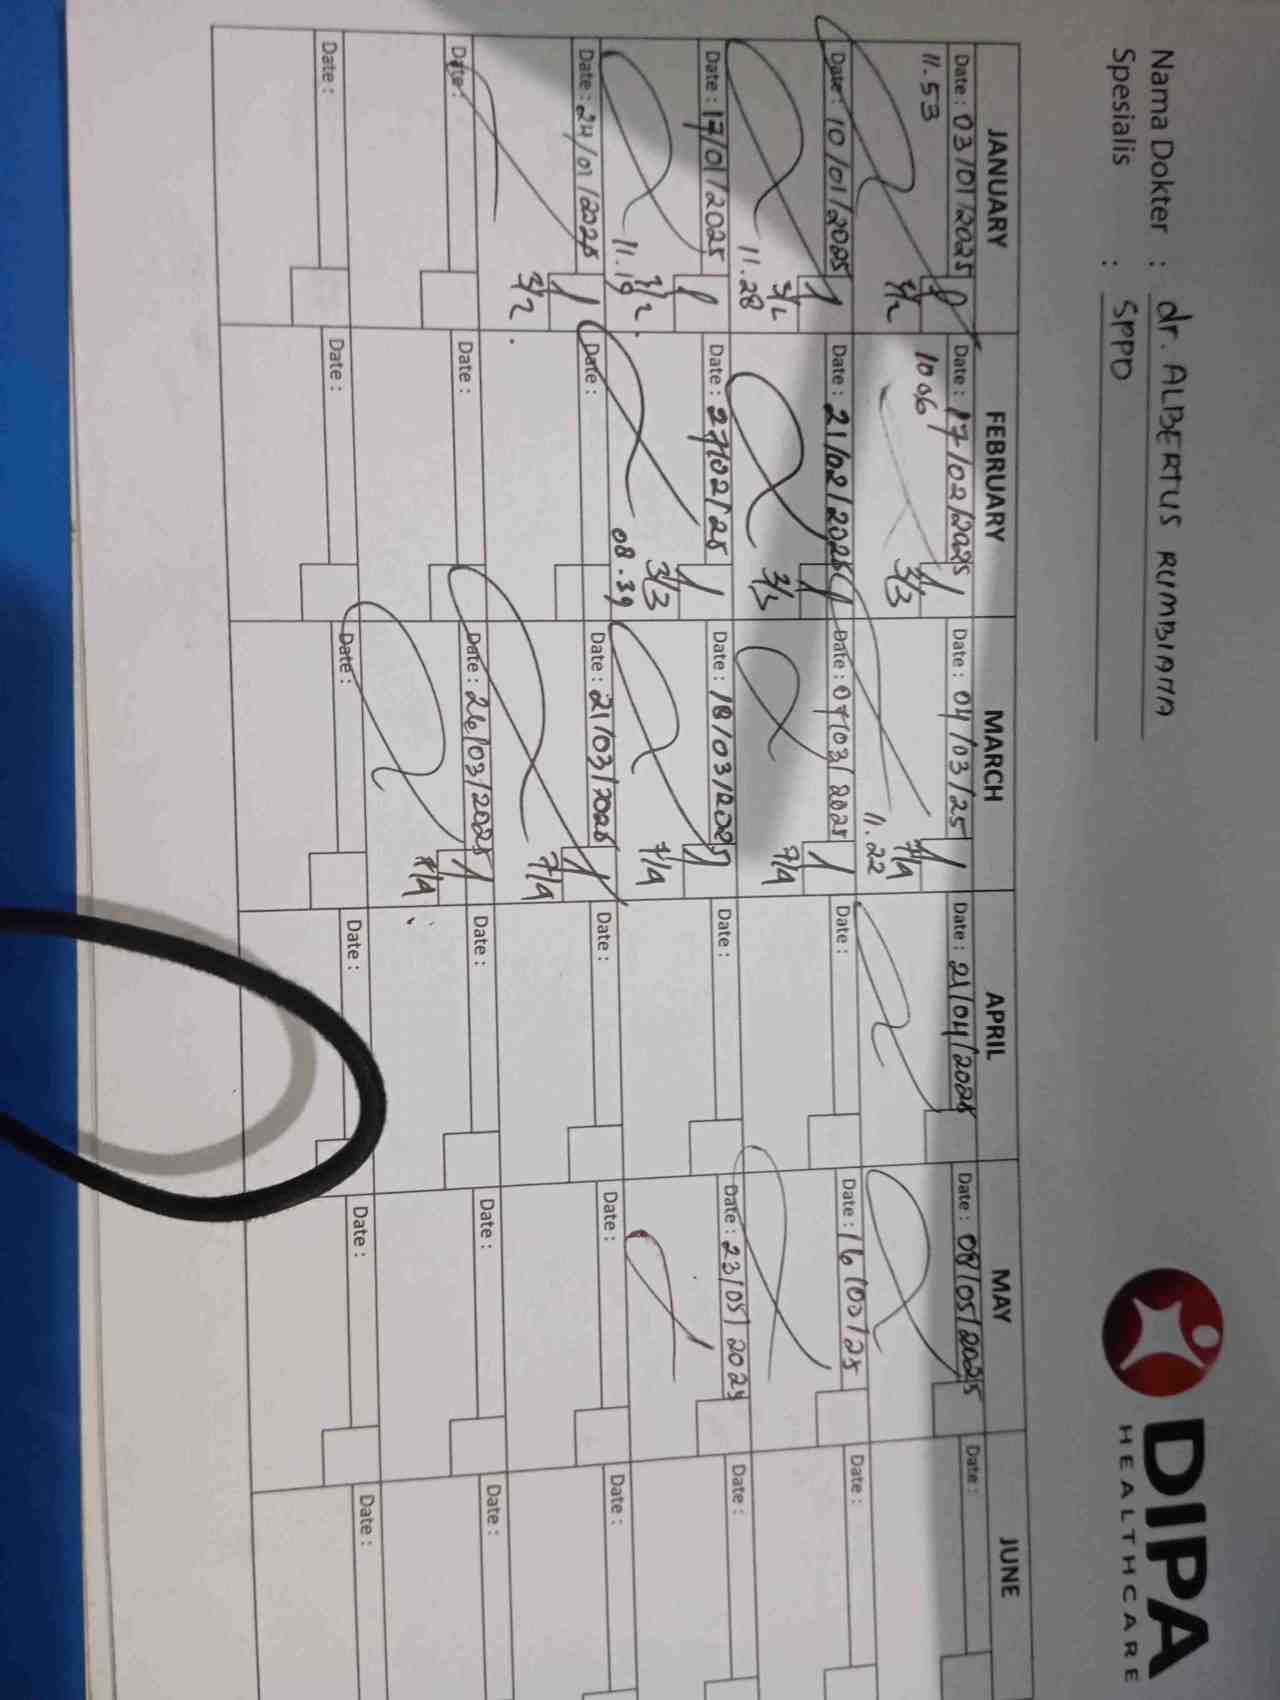 DIPA
HEALTHCARE
Nama Dokter : dr. ALBERTUS RUMBIANA
Spesialis : SPPD
JANUARY FEBRUARY MARCH APRIL MAY JUNE
Date : 03/01/2025 Date : 17/02/2025 Date : 04/03/25 Date : 21/04/2025 Date : 08/05/2025 Date :
11.53 10 06 3/3 11.22 7/4
Date : 10/01/2025 Date : 21/02/2025 Date : 07/03/2025 Date : Date : 16/05/25 Date :
11.28 3/3 7/4
Date : 17/01/2025 Date : 27/02/25 Date : 18/03/2025 Date : Date : 23/05/2025 Date :
11.19 3/2 08.39 3/3 7/4
Date : 24/01/2025 Date : Date : 21/03/2025 Date : Date : Date :
3/2 7/4
Date : Date : Date : 26/03/2025 Date : Date : Date :
7/4
Date : Date : Date : Date : Date : Date :